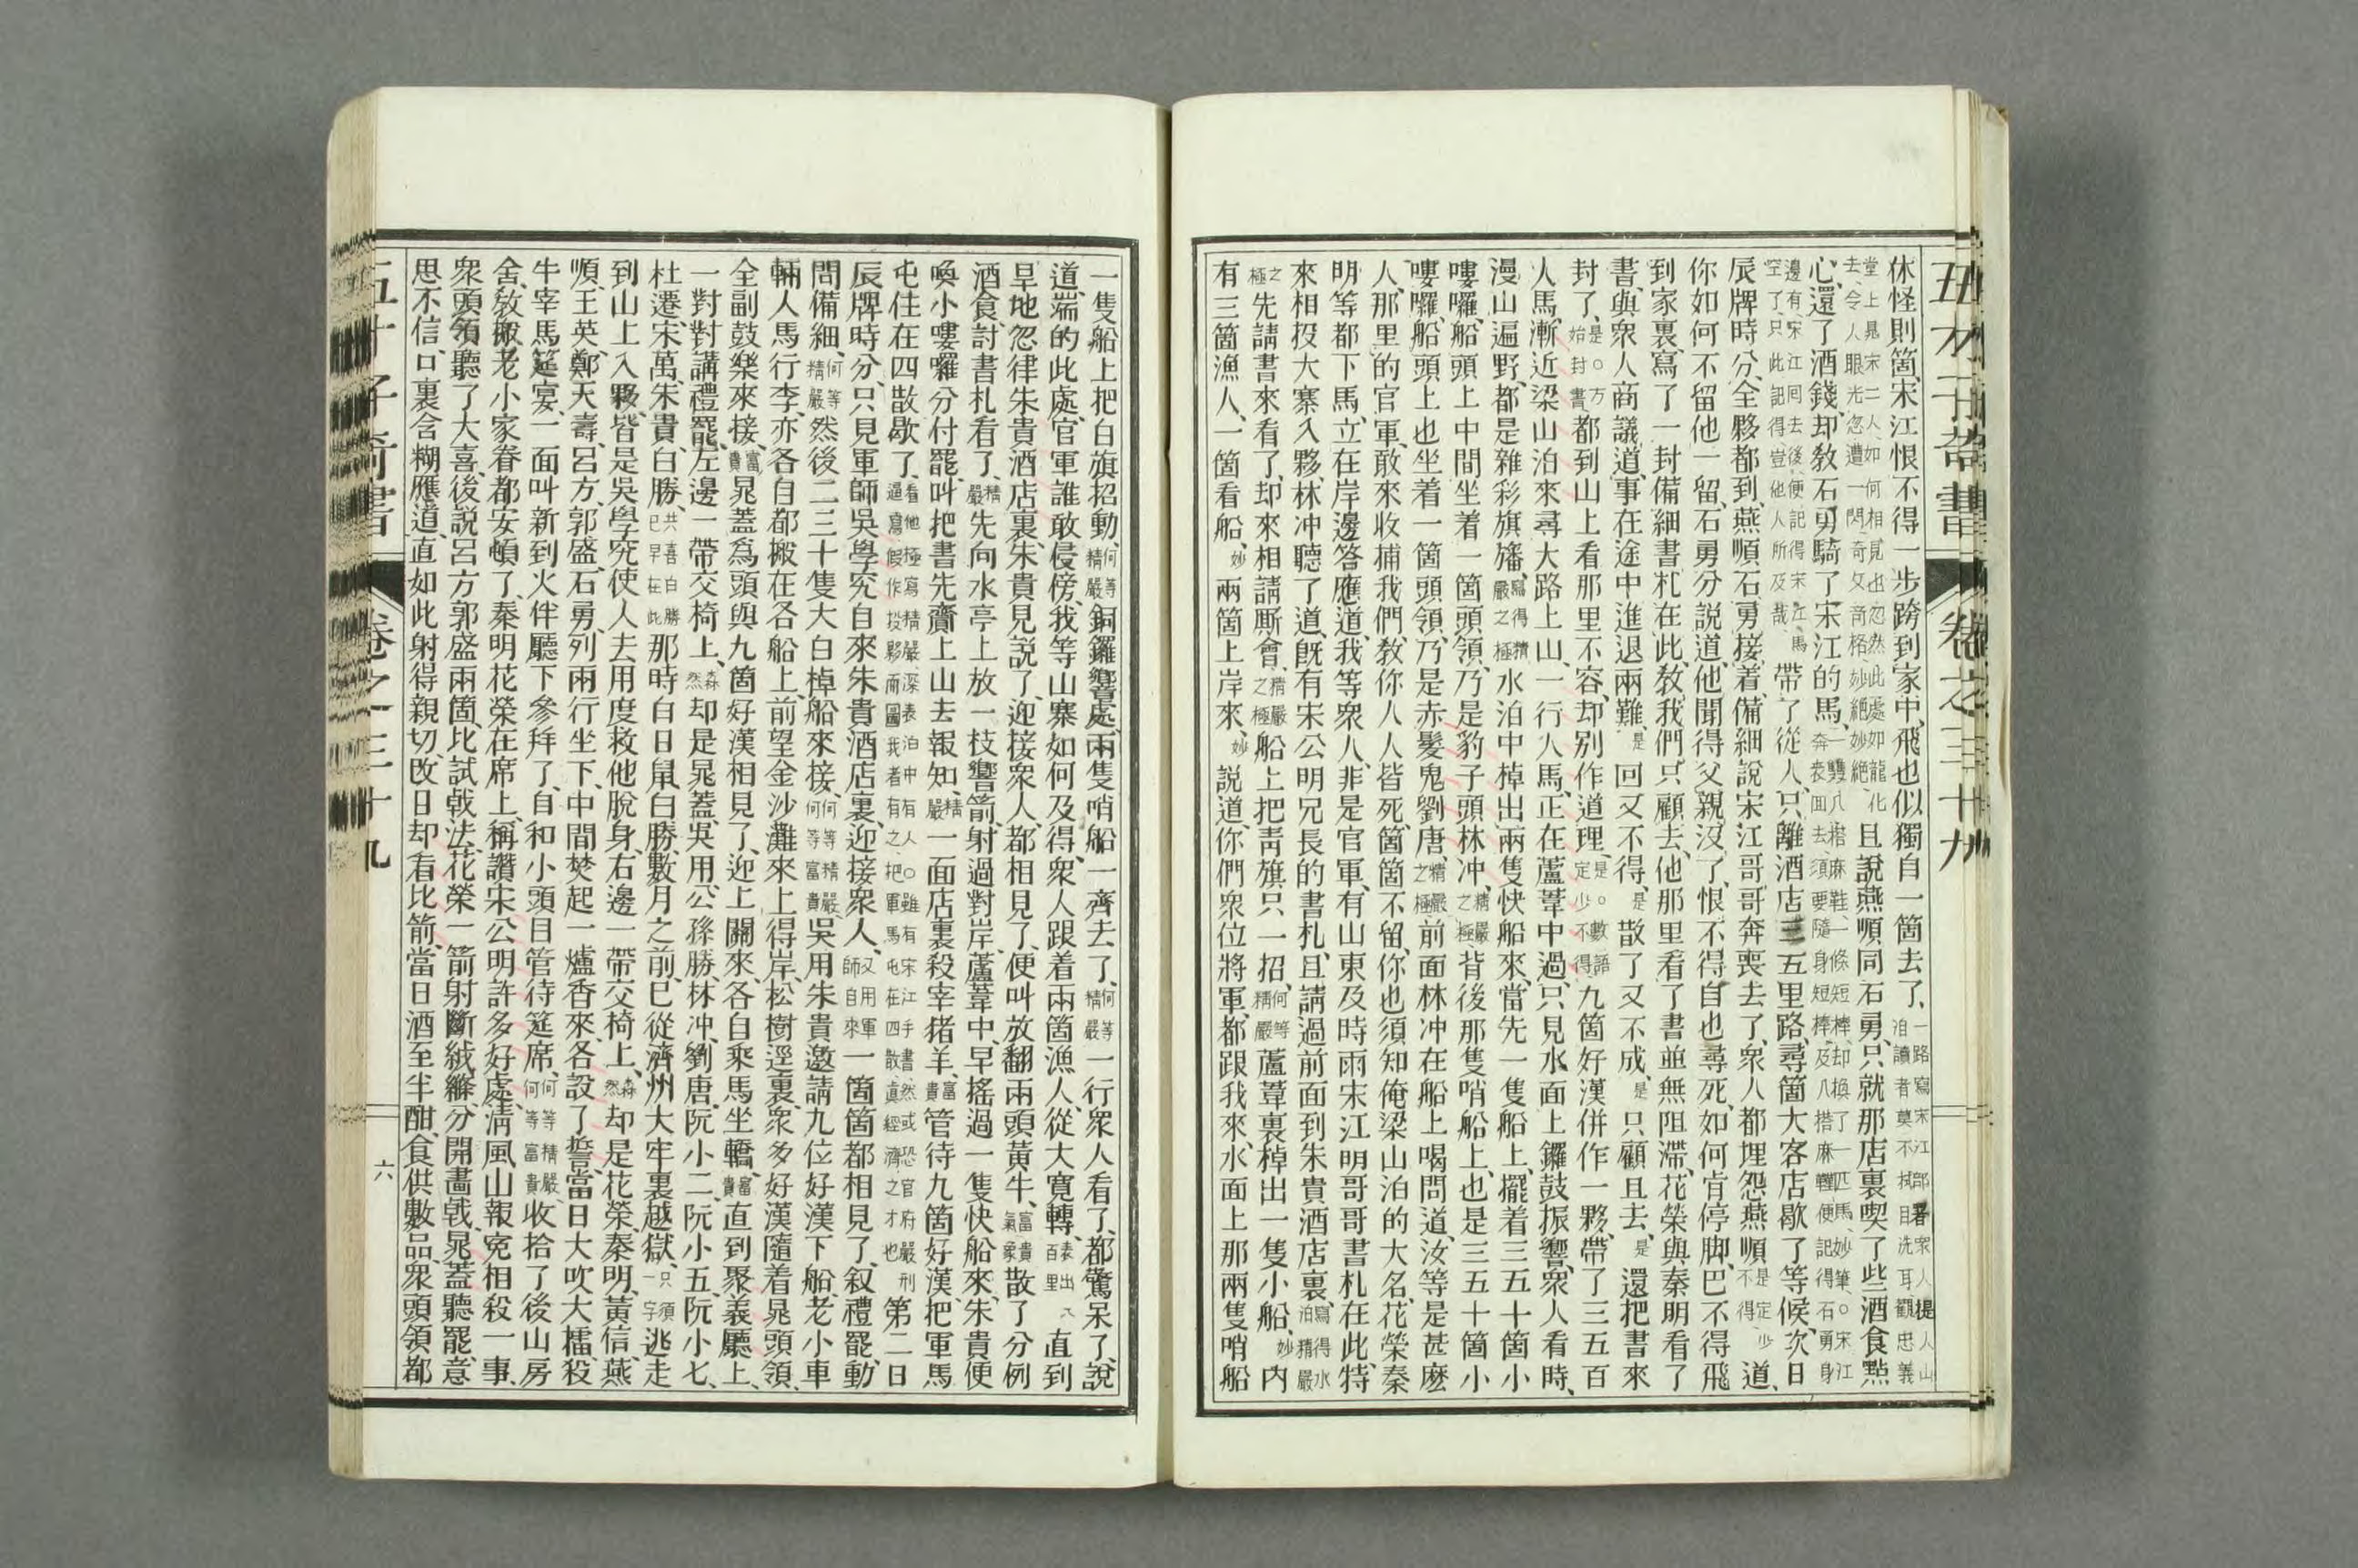 五才子奇書 卷之三十九
休怪則箇、宋江恨不得一步跨到家中、飛也似獨自一箇去了、一路寫宋江都
堂上晁宋二人、如何相見也、忽然此處如龍化去、令人眼光忽遭一閃、奇文奇格、妙絕妙絕、且說燕順同石勇、只就那店裏喫了些酒食、點
心、還了酒錢、却教石勇騎了宋江的馬、帶了從人、只離酒店三五里路、尋箇大客店歇了等候、次日
辰牌時分、全夥都到、燕順石勇接着、備細說宋江哥哥奔喪去了、衆人都埋怨燕順、是定少不得、道、
你如何不留他一留、石勇分說道、他聞得父親沒了、恨不得自也尋死、如何肯停脚、巴不得飛
到家裏、寫了一封備細書札在此、教我們只顧去、他那里看了書、並無阻滯、花榮與秦明看了
書、與衆人商議道、事在途中、進退兩難、是回又不得、是散了又不成、是只顧且去、是還把書來
封了、是○方始封書、都到山上看、那里不容、却別作道理、是○數語定少不得、九箇好漢併作一夥、帶了三五百
人馬、漸近梁山泊來、尋大路上山、一行人馬、正在蘆葦中過、只見水面上鑼鼓振響、衆人看時、
漫山遍野、都是雜彩旗旛、寫得精嚴之極、水泊中棹出兩隻快船來、當先一隻船上、擺着三五十箇小
嘍囉、船頭上中間坐着一箇頭領、乃是豹子頭林冲、精嚴之極、背後那隻哨船上、也是三五十箇小
嘍囉、船頭上也坐着一箇頭領、乃是赤髮鬼劉唐、精嚴之極、前面林冲在船上喝問道、汝等是甚麼
人、那里的官軍、敢來收捕我們、教你人人皆死、箇箇不留、你也須知俺梁山泊的大名、花榮秦
明等都下馬、立在岸邊答應道、我等衆人、非是官軍、有山東及時雨宋江明哥哥書札在此、特
來相投大寨入夥、林冲聽了道、既有宋公明兄長的書札、且請過前面、到朱貴酒店裏、寫得水泊精嚴
之極、先請書來看了、却來相請厮會、精嚴之極、船上把青旗只一招、何等精嚴、蘆葦裏棹出一隻小船、妙內
有三箇漁人、一箇看船、妙兩箇上岸來、妙說道、你們衆位將軍、都跟我來、水面上那兩隻哨船
一隻船上把白旗招動、何等精嚴、銅鑼響處、兩隻哨船一齊去了、何等精嚴、一行衆人看了、都驚呆了、說
道、端的此處、官軍誰敢侵傍、我等山寨如何及得、衆人跟着兩箇漁人、從大寬轉、表出八百里、直到
旱地忽律朱貴酒店裏、朱貴見說了、迎接衆人都相見了、便叫放翻兩頭黃牛、富貴氣象、散了分例
酒食、討書札看了、精嚴、先向水亭上放一枝響箭、射過對岸、蘆葦中、早搖過一隻快船來、朱貴便
喚小嘍囉分付罷、叫把書先齎上山去報知、精嚴、一面店裏殺宰猪羊、富貴、管待九箇好漢、把軍馬
屯住在四散歇了、看他極寫精嚴、深表泊中有人○雖有宋江手書、然或恐官府嚴刑逼寫、假作投夥而圖我者有之、把軍馬屯在四散、眞經濟之才也、第二日
辰牌時分、只見軍師吳學究自來朱貴酒店裏、迎接衆人、又用軍師自來、一箇箇都相見了、叙禮罷、動
問備細、何等精嚴、然後二三十隻大白棹船來接、何等精嚴、何等富貴、吳用朱貴邀請九位好漢下船、老小車
輛人馬行李、亦各自都搬在各船上、前望金沙灘來、上得岸、松樹逕裏、衆多好漢隨着晁頭領、
全副鼓樂來接、富貴、晁蓋爲頭、與九箇好漢相見了、迎上關來、各自乘馬坐轎、富貴、直到聚義廳上、
一對對講禮罷、左邊一帶交椅上、森然、却是晁蓋、吳用、公孫勝、林冲、劉唐、阮小二、阮小五、阮小七、
杜遷、宋萬、朱貴、白勝、共喜白勝已早在此、那時白日鼠白勝、數月之前、已從濟州大牢裏越獄、只須一字、逃走
到山上入夥、皆是吳學究使人去用度救他脫身、右邊一帶交椅上、森然、却是花榮、秦明、黃信、燕
順、王英、鄭天壽、呂方、郭盛、石勇、列兩行坐下、中間焚起一爐香來、各設了誓、當日大吹大擂、殺
牛宰馬筵宴、一面叫新到火伴、廳下參拜了、自和小頭目管待筵席、何等精嚴、何等富貴、收拾了後山房
舍、敎搬老小家眷都安頓了、秦明花榮在席上、稱讚宋公明許多好處、淸風山報寃相殺一事、
衆頭領聽了大喜、後說呂方郭盛兩箇、比試戟法、花榮一箭射斷絨縧、分開畫戟、晁蓋聽罷、意
思不信、口裏含糊應道、直如此射得親切、改日却看比箭、當日酒至半酣、食供數品、衆頭領都
五才子奇書 卷之三十九 六